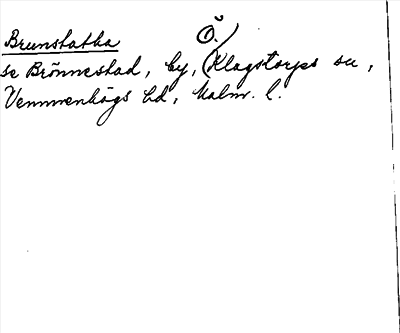 Brunstatha
se Brönnestad, by, Ö. Klagstorps sn,
Vemmenhögs hd, Malm. l.